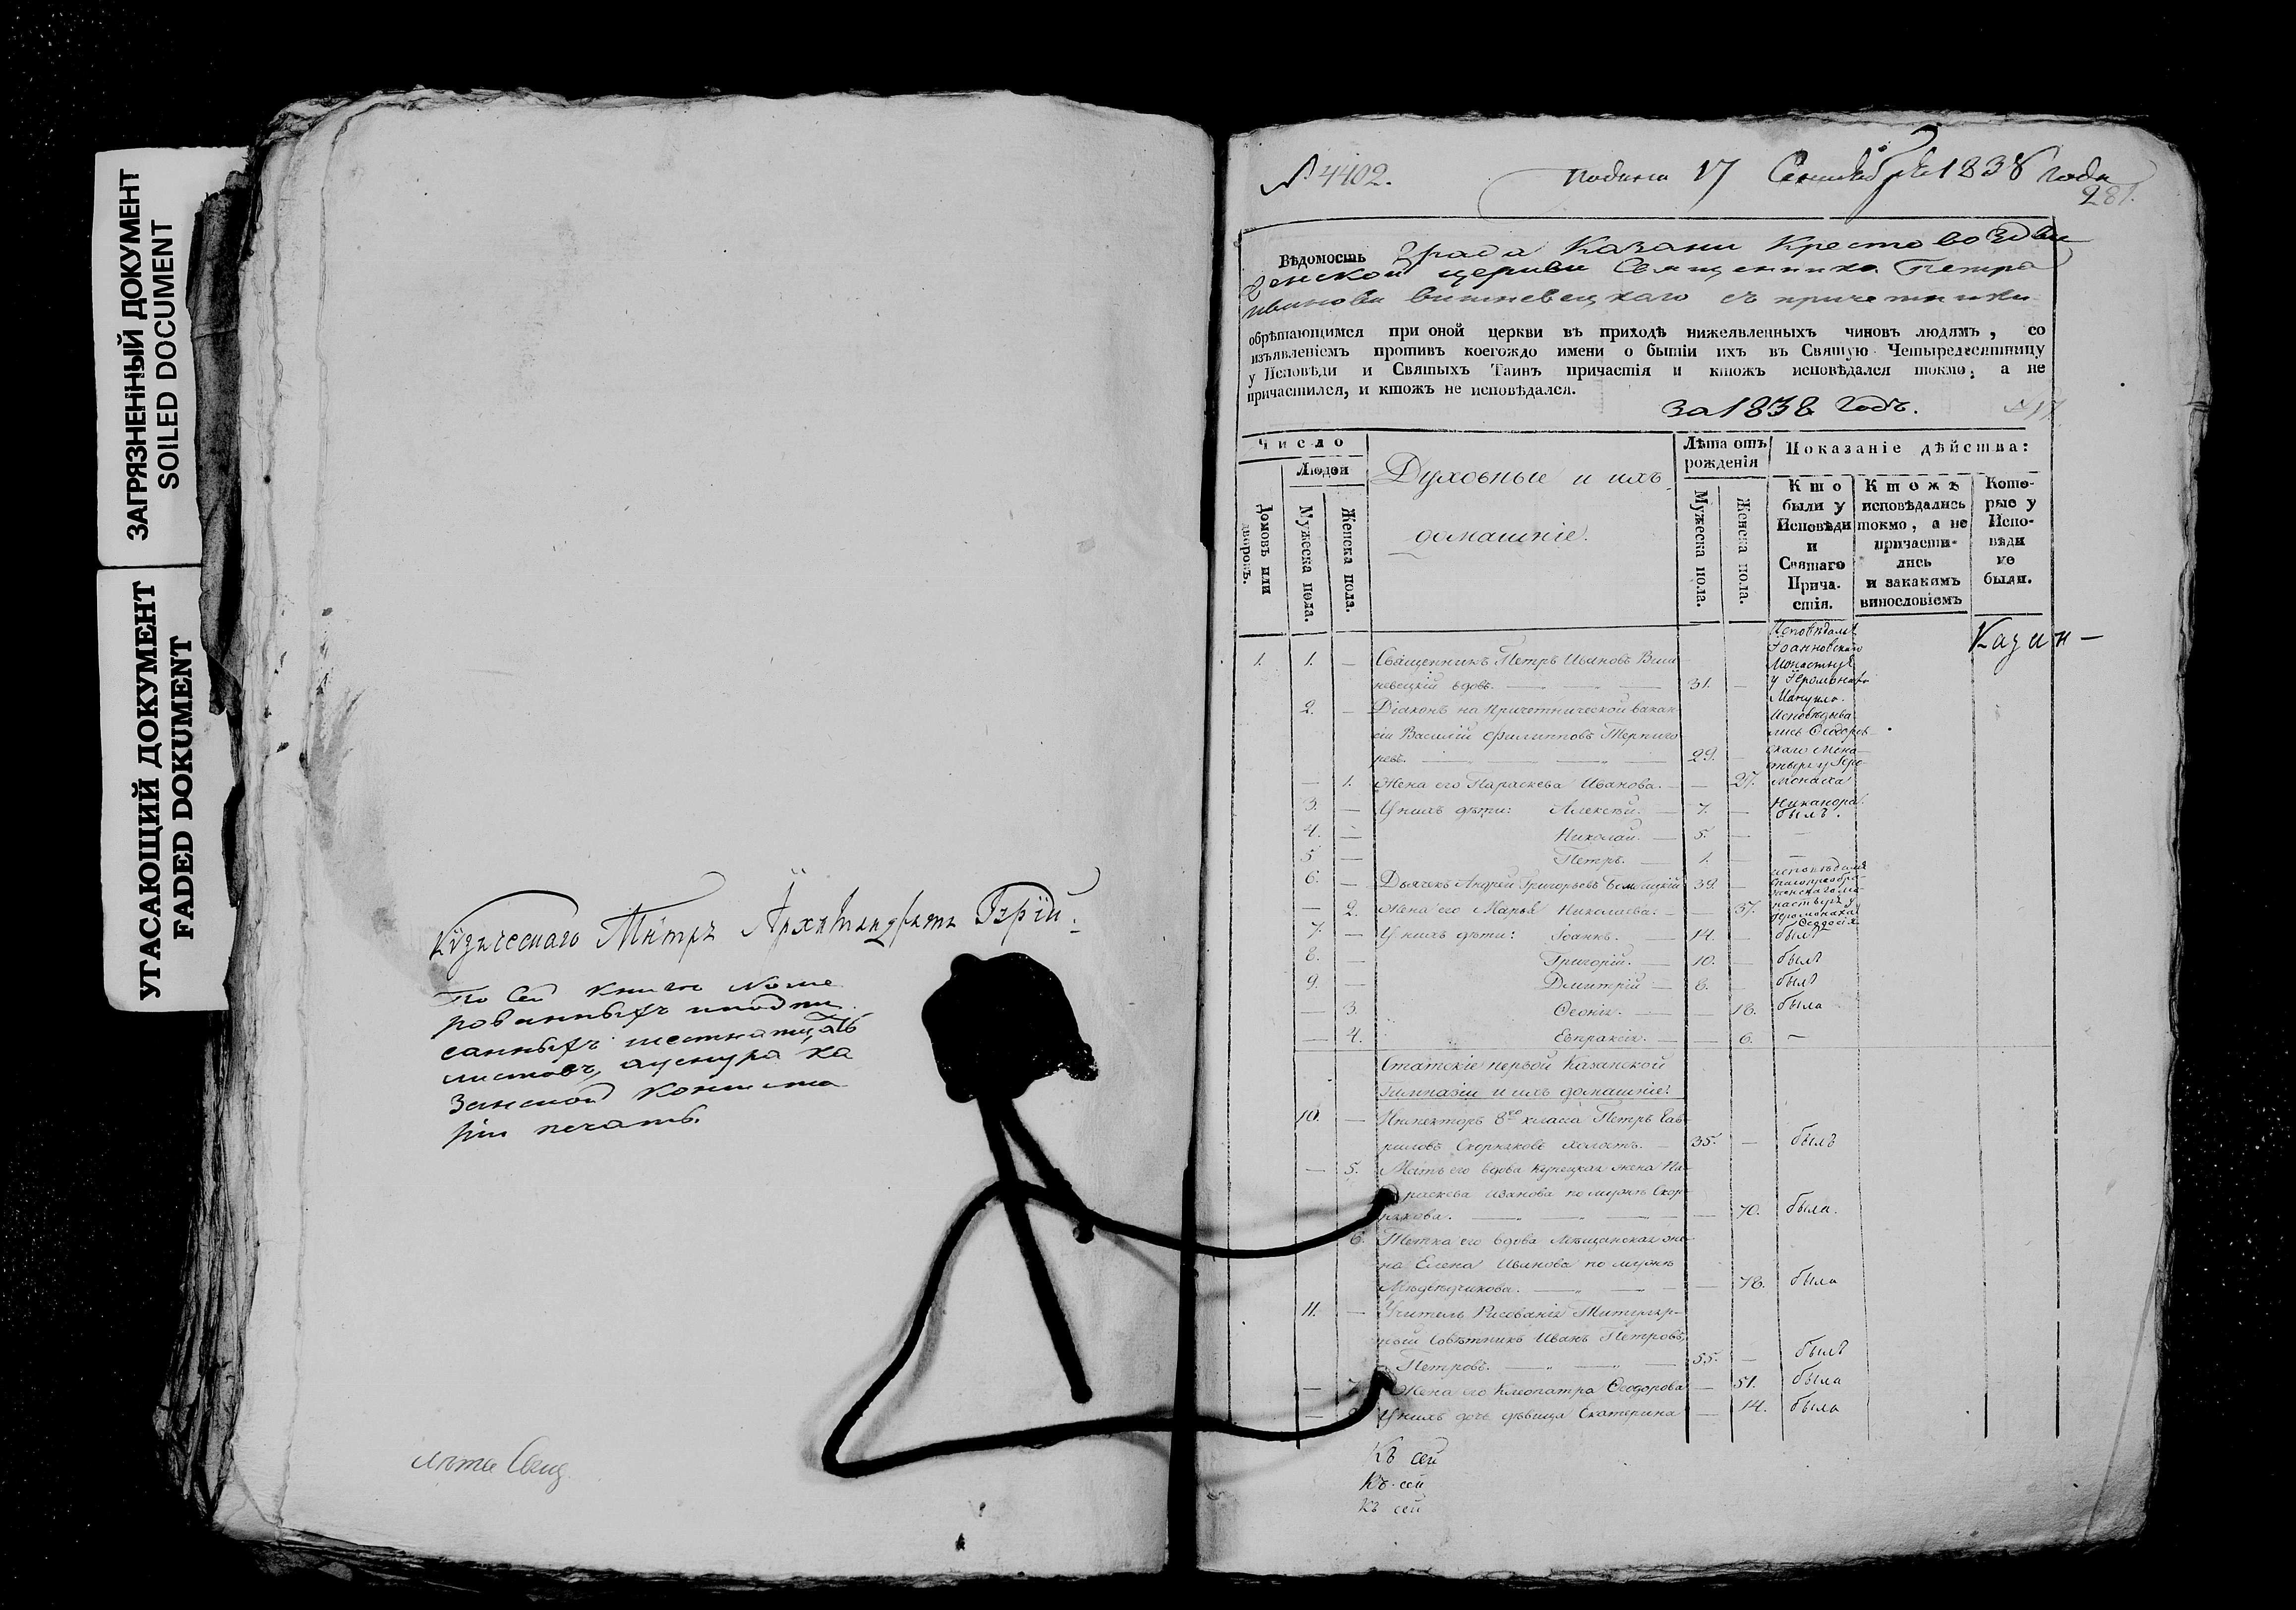 ЗАГРЯЗНЕННЫЙ ДОКУМЕНТ
SOILED DOCUMENT
УГАСАЮЩИЙ ДОКУМЕНТ
FADED DOKUMENT
Архимандритъ
По сей книге номе
рованныхъ
санныхъ шестнатцать
листовъ, ау снура ка
занской консисто
рiи печать.
№ 4402.
подана 17 Сентября 1838 года
281.
Вѣдомость града Казани Крестовоздви
женской церкви Священника Петра
Иванова Вишневецкаго съ причетники
обрѣтающимся при оной церкви въ приходѣ нижеявленныхъ чиновъ людямъ, со
изъявленіемъ противъ коегождо имени о бытіи ихъ въ Святую Четыредесятницу
у Исповѣди и Святыхъ Таинъ причастія и ктожъ исповѣдался токмо, а не
причастился, и ктожъ не исповѣдался.
за 1838 годъ.
Число
Людей
Домовъ или дворовъ.
Мужеска пола.
Женска пола.
Духовные и ихъ
домашніе.
Лѣта отъ рожденія
Мужеска пола.
Женска пола.
Показаніе дѣйства:
Кто были у Исповѣди и Святаго Причастія.
Ктожъ исповѣдались токмо, а не причастились и закакимъ винословіемъ
Которые у Исповѣди не были.
Казан-
1. 1. — Священникъ Петръ Ивановъ Виш
невецкій вдовъ. 31. —
Исповѣдался
Іоанновскаго
Монастыря
у Іеромонаха
2. — Діаконъ на причетнической вакан
сіи Василій Филипповъ Терпиго
ревъ. 29. —
Ѳеодоров
скаго Мона
стыря у Іеро
монаха
Никанора.
— 1. Жена его Параскева Иванова. — 27.
3. — У нихъ дѣти: Алексѣй. 7. — былъ.
4. — Николай. 5. — —
5. — Петръ. 1. — —
6. — Дьячекъ Андрей Григорьевъ 39. —
— 2. Жена его Марья Николаева. — 37.
7. — У нихъ дѣти: Іоаннъ. 14. — былъ
8. — Григорій. 10. — былъ
9. — Дмитрій 8. — былъ
— 3. Ѳеонія. — 18. была
— 4. Евпраксія. — 6. —
Статскіе первой Казанской
Гимназіи и ихъ домашніе:
10. — Инспекторъ 8го класса Петръ Гав
риловъ Скорняковъ холостъ. 35. — былъ
— 5. Мать его вдова купецкая жена Па
раскева Иванова по мужѣ Скор
някова. — 70. была.
6. Тетка его вдова мѣщанская же
на Елена Иванова по мужѣ
— 78. была
11. — Учитель Рисованія Титуляр
ный Совѣтникъ Иванъ Петровъ
Петровъ. 55. — былъ
— 7. Жена его Клеопатра Ѳеодорова — 51. была
— 8. У нихъ дочь дѣвица Екатерина — 14. была
Къ сей
Къ сей
Къ сей